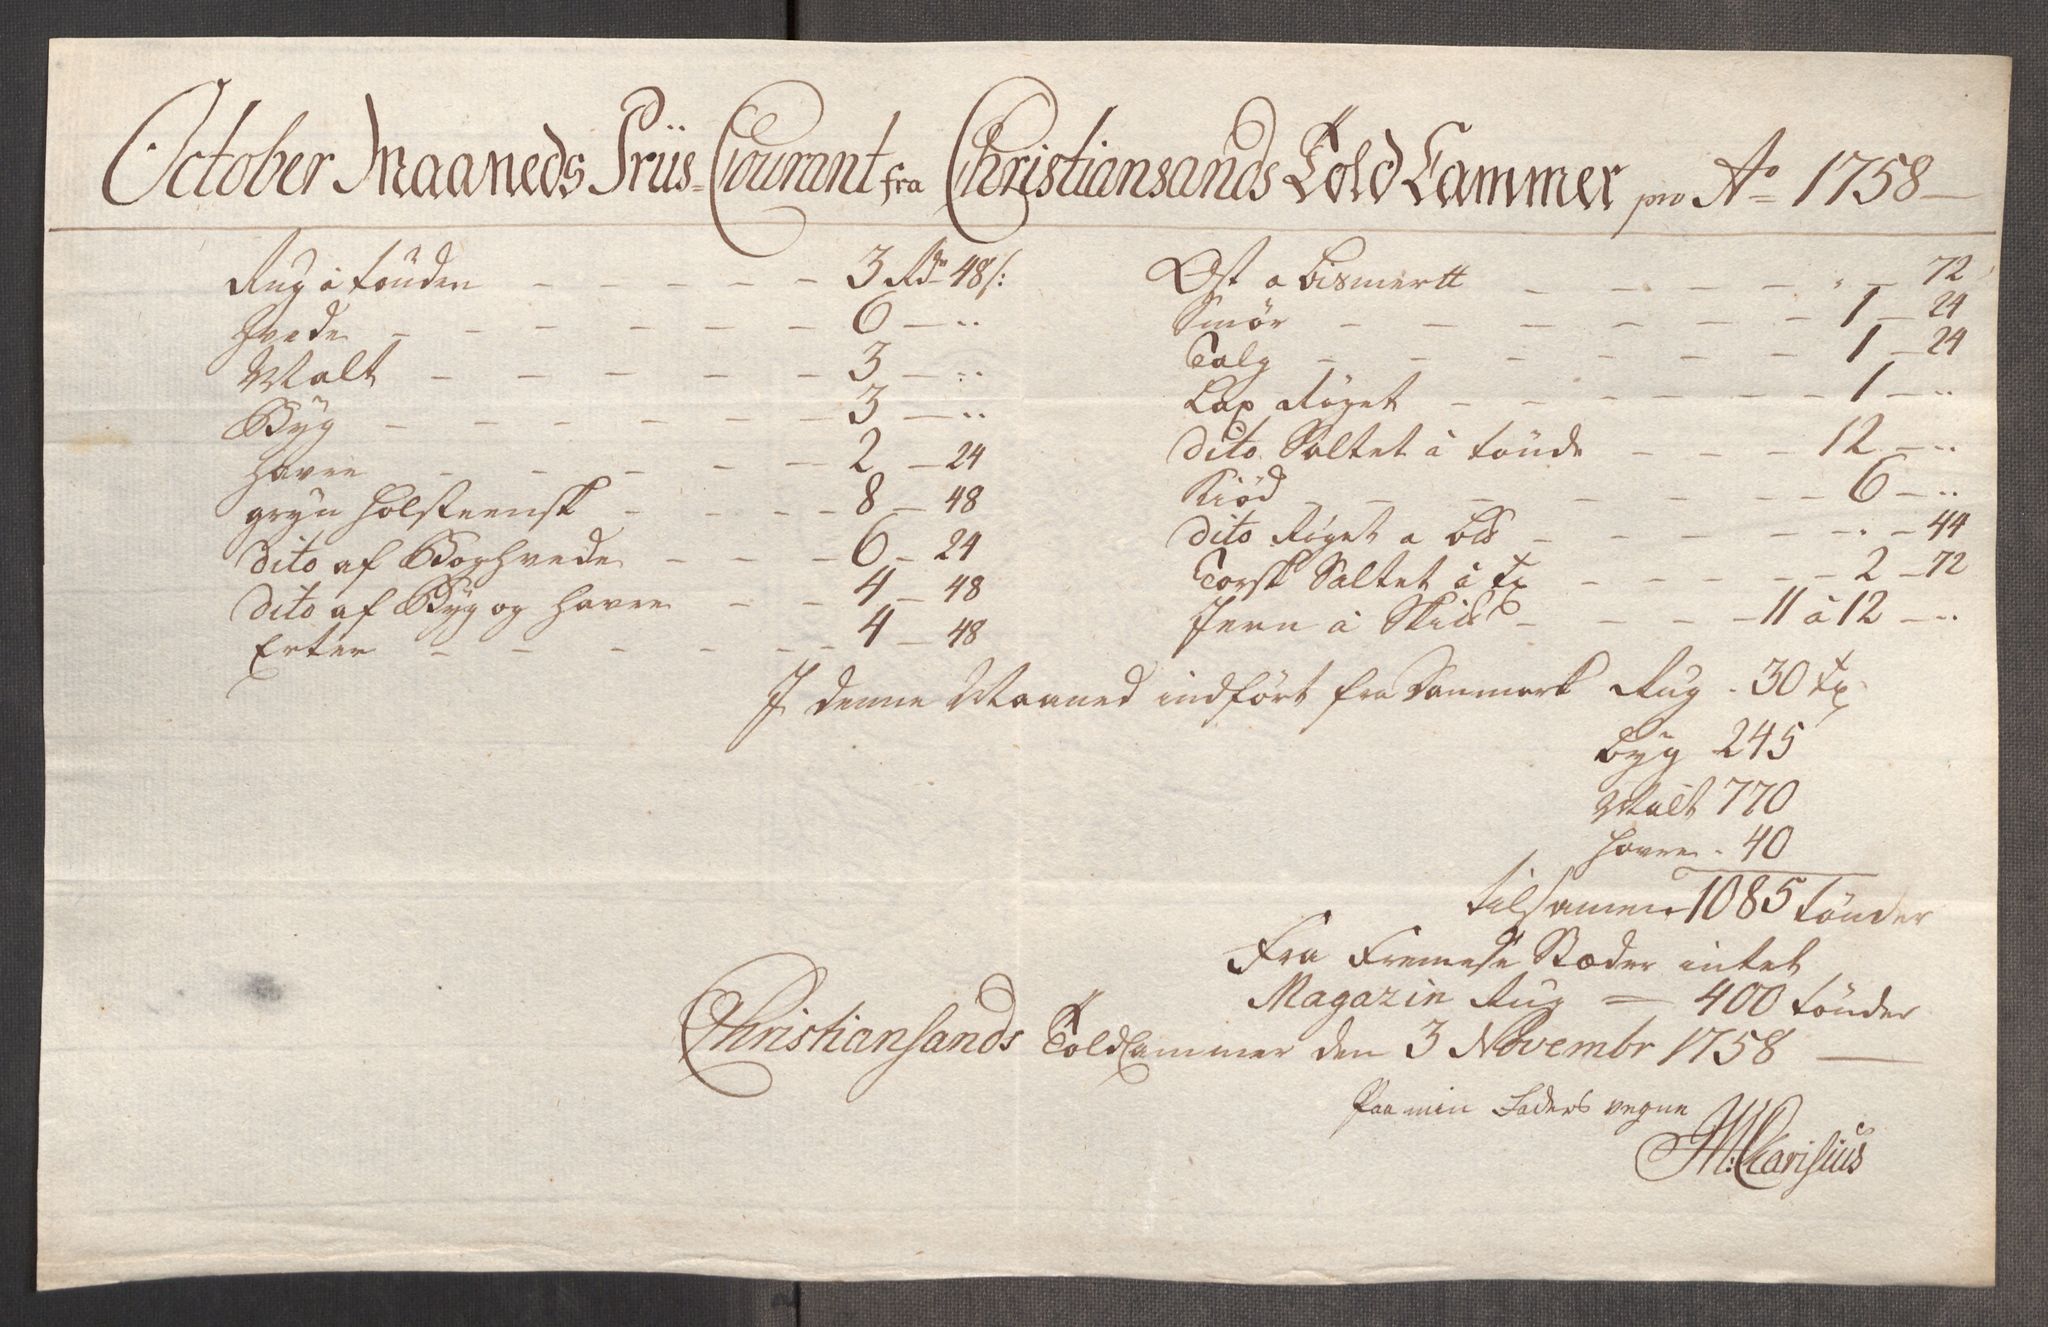 October Maaneds Priis-Courant fra Christiansands Told Cammer pro Ao 1758
Rug a tønden - - - - - 3 Rdr 48 s:
Hvede - - - - - - 6 - ..
Malt - - - - - - 3 - ..
Byg - - - - - - 3 - ..
Havre - - - - - 2 - 24
gryn Holsteensk - - - - 8 - 48
dito af Boghvede - - - 6 - 24
dito af Byg og Havre - - 4 - 48
Erter - - - - - - 4 - 48
Ost a bismertt - - - - - " - 72
Smør - - - - - - 1 - 24
Talg - - - - - - 1 - 24
Lax Røget - - - - - - 1 - ..
dito Saltet à tønde - - - 12 - ..
Kiød - - - - - - 6 - ..
dito Røget a bis - - - - - " - 44
Torsk Saltet à tr - - - - - 2 - 72
Jern à Skid - - - - 11 à 12 - ..
I denne Maaned indført fra Danmark Rug . 30 tr
Byg 245
Malt 770
Havre . 40
tilsamen 1085 tønder
Fra Fremede Stæder intet
Magazin Rug = 400 tønder
Christiansands ToldCammer den 3 Novembr 1758
Paa min Faders vegne
M: Carisius